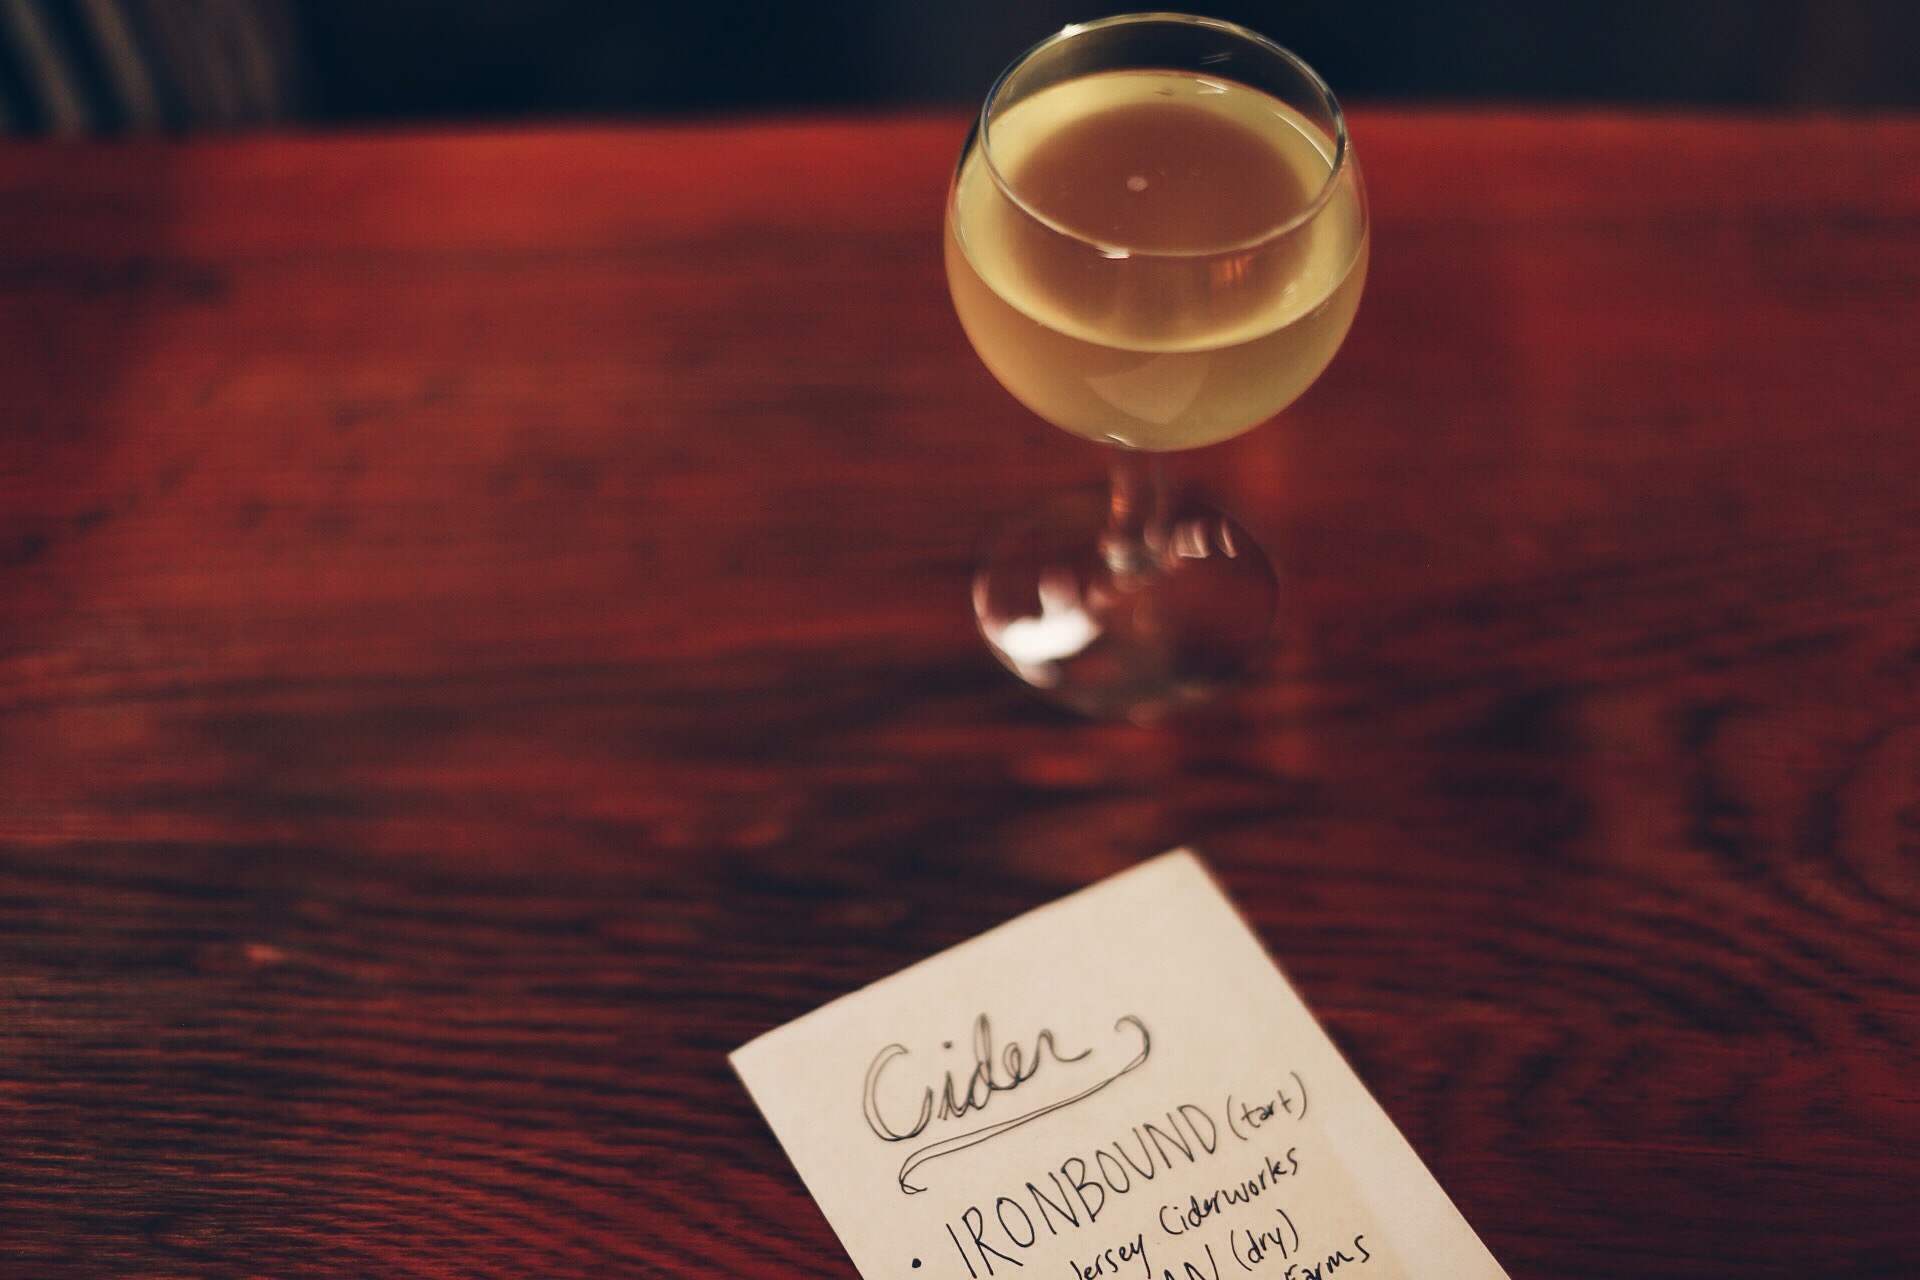 Cider
• IRONBOUND (tart)
Jersey Ciderworks
(dry)
Farms